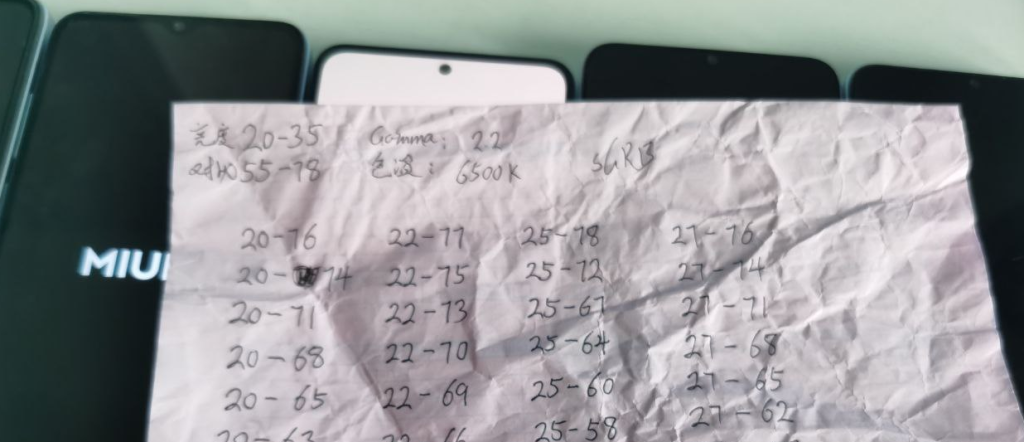 亮度 20-35 Gamma: 2.2
对比 55-78 色温: 6500K sGRB
20-76 22-77 25-78 27-76
20-74 22-75 25-72 27-74
20-71 22-73 25-67 27-71
20-68 22-70 25-64 27-68
20-65 22-69 25-60 27-65
20-63 22-66 25-58 27-62
MIUI